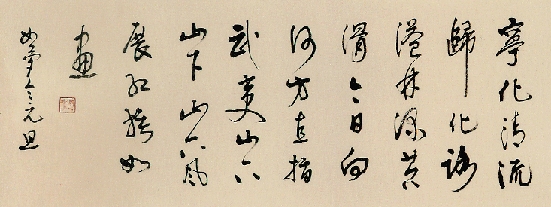 寧化清流
歸化路
隘林深苔
滑今日向
何方直指
武夷山下
山下山下風
展紅旗如
畫
如夢令元旦